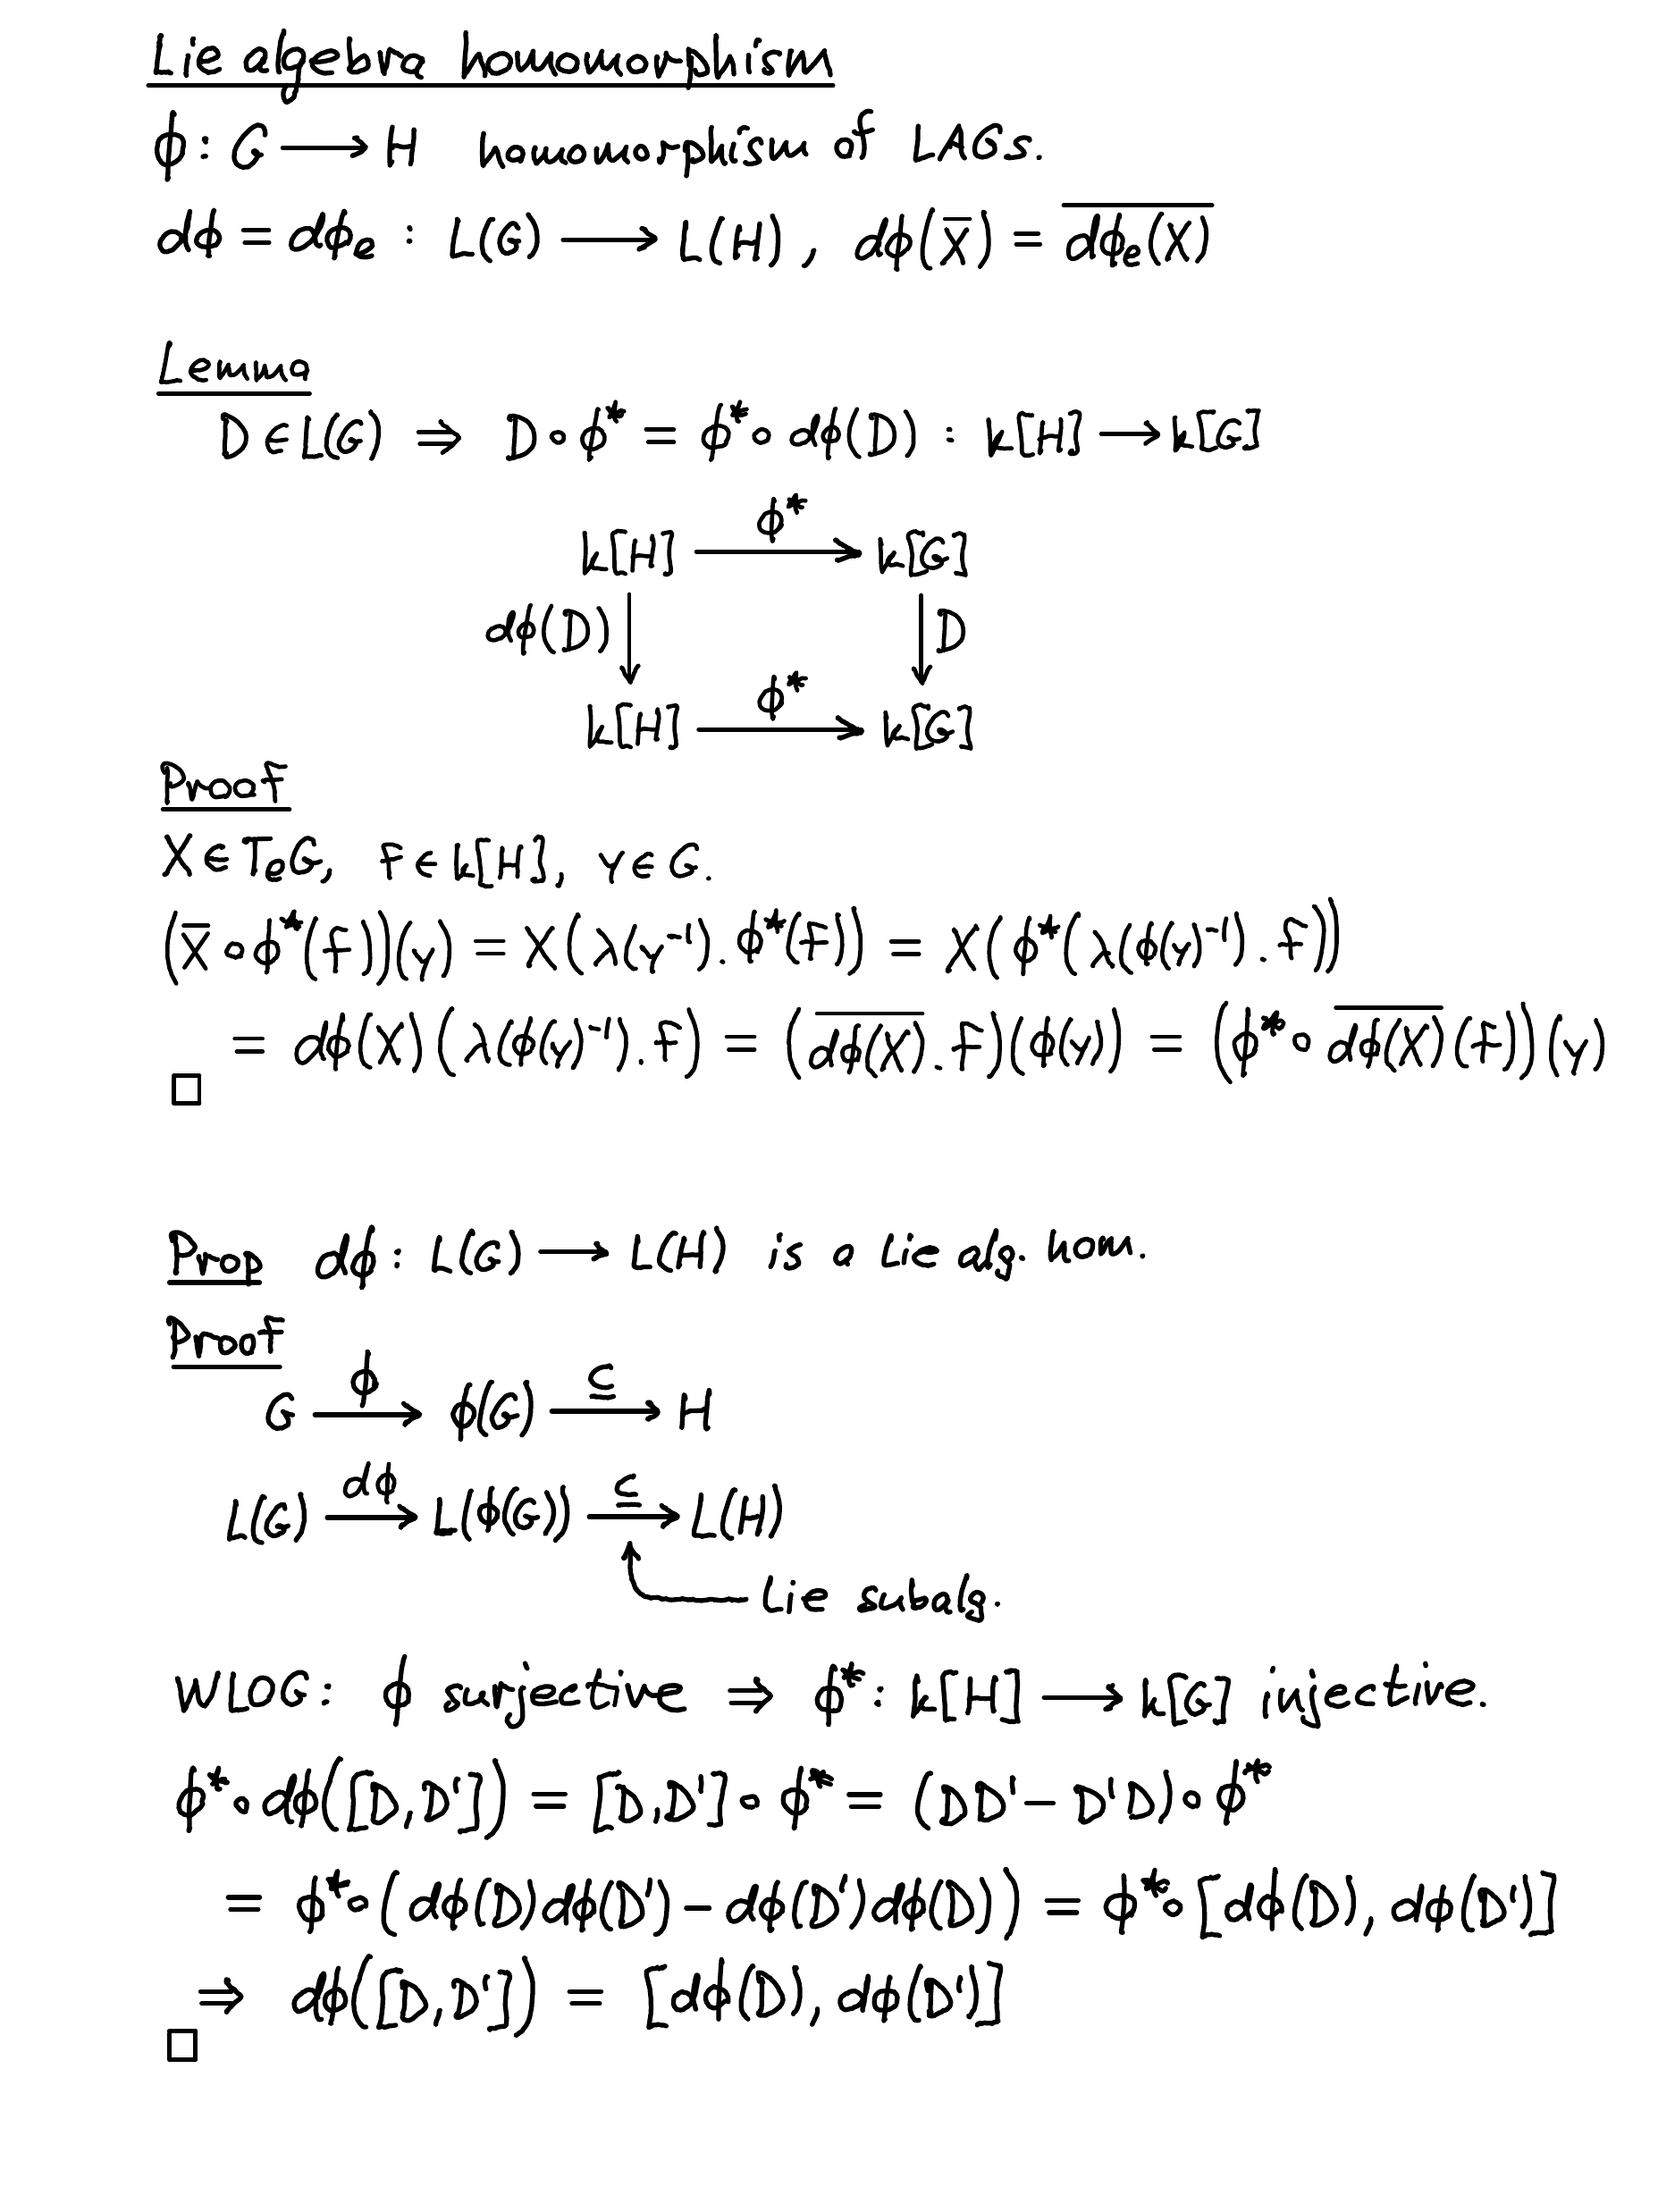 Lie algebra homomorphism
ϕ: G ⟶ H homomorphism of LAGs.
dϕ = dϕₑ : L(G) ⟶ L(H), dϕ(X̄) = \overline{dϕₑ(X)}
Lemma
D ∈ L(G) ⇒ D∘ϕ* = ϕ*∘dϕ(D) : k[H] ⟶ k[G]
ϕ*
k[H] ⟶ k[G]
dϕ(D) ↓ ↓ D
ϕ*
k[H] ⟶ k[G]
Proof
X ∈ TₑG, f ∈ k[H], y ∈ G.
(X̄∘ϕ*(f))(y) = X(λ(y⁻¹).ϕ*(f)) = X(ϕ*(λ(ϕ(y)⁻¹).f))
= dϕ(X)(λ(ϕ(y)⁻¹).f) = (\overline{dϕ(X)}.f)(ϕ(y)) = (ϕ*∘\overline{dϕ(X)}(f))(y)
□
Prop dϕ: L(G) ⟶ L(H) is a Lie alg. hom.
Proof
ϕ ⊆
G ⟶ ϕ(G) ⟶ H
dϕ ⊆
L(G) ⟶ L(ϕ(G)) ⟶ L(H)
Lie subalg.
WLOG: ϕ surjective ⇒ ϕ*: k[H] ⟶ k[G] injective.
ϕ*∘dϕ([D,D']) = [D,D']∘ϕ* = (DD' − D'D)∘ϕ*
= ϕ*∘(dϕ(D)dϕ(D') − dϕ(D')dϕ(D)) = ϕ*∘[dϕ(D), dϕ(D')]
⇒ dϕ([D,D']) = [dϕ(D), dϕ(D')]
□